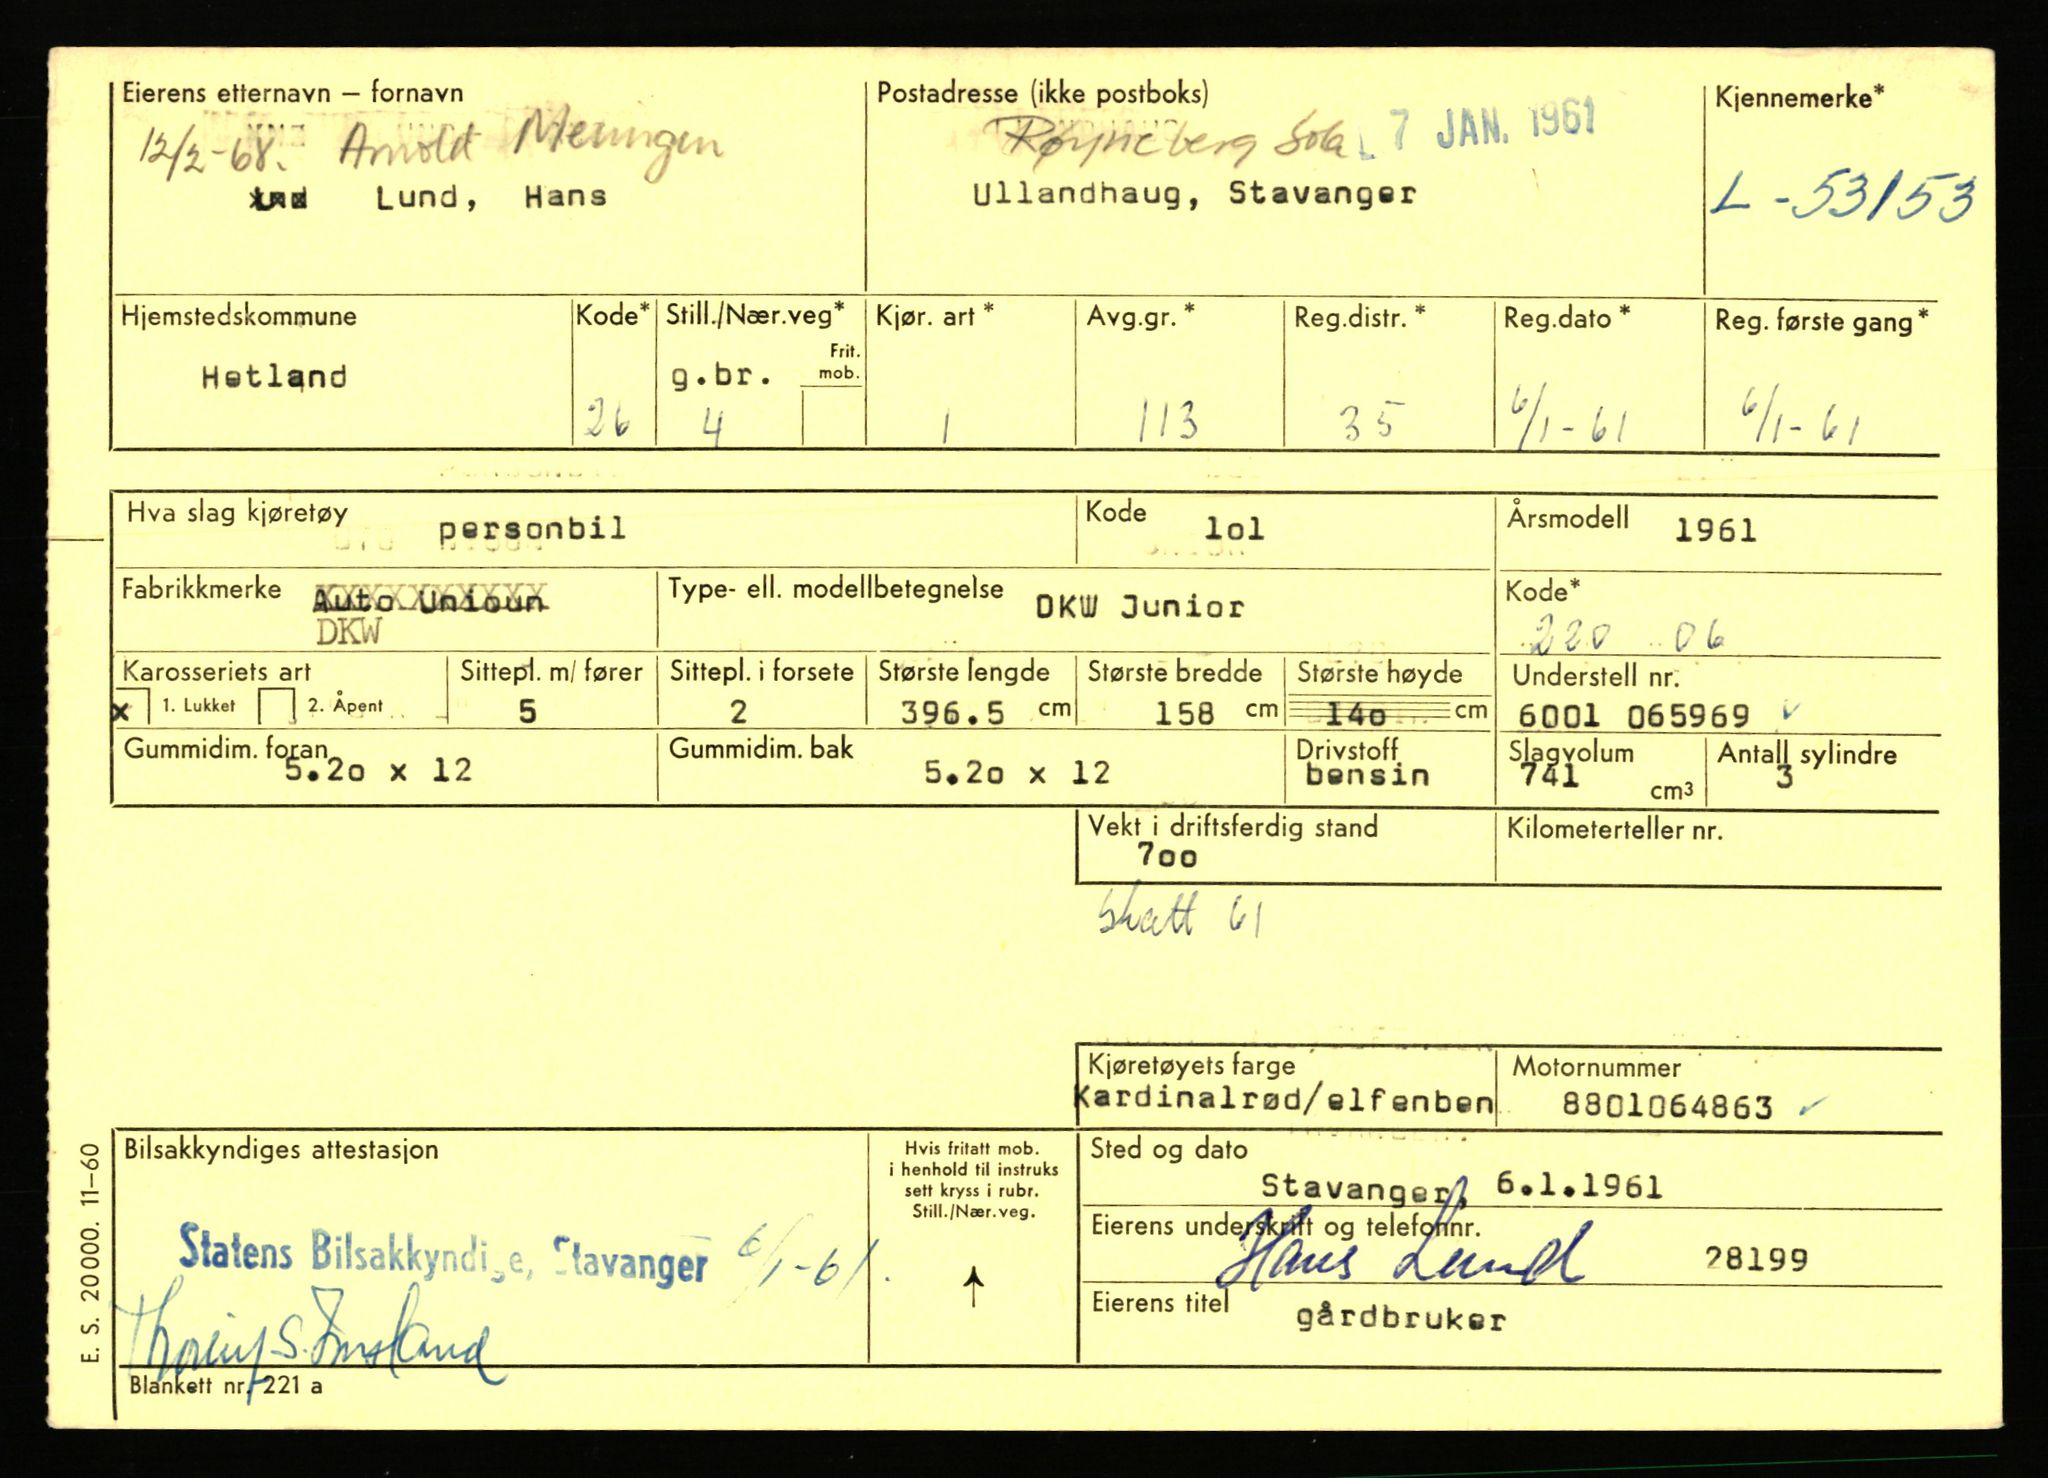 Eierens etternavn – fornavn
Postadresse (ikke postboks)
Kjennemerke*
12/2-68. Arnold
Sola
7 JAN. 1961
Lund, Hans
Ullandhaug, Stavanger
L-53153
Hjemstedskommune
Kode*
Still./Nær.veg*
Kjør. art*
Avg.gr.*
Reg.distr.*
Reg.dato*
Reg. første gang*
Frit. mob.
Hetland
26
g.br.
4
1
113
35
6/1-61
6/1-61
Hva slag kjøretøy
personbil
Kode
lol
Årsmodell
1961
Fabrikkmerke
Auto Unioun
DKW
Type- ell. modellbetegnelse
DKW Junior
Kode*
220 06
Karosseriets art
x 1. Lukket 2. Åpent
Sittepl. m/ fører
5
Sittepl. i forsete
2
Største lengde
396.5 cm
Største bredde
158 cm
Største høyde
14o cm
Understell nr.
6001 065969 ✓
Gummidim. foran
5.2o x 12
Gummidim. bak
5.2o x 12
Drivstoff
bensin
Slagvolum
741 cm³
Antall sylindre
3
Vekt i driftsferdig stand
7oo
Kilometerteller nr.
skatt 61
Kjøretøyets farge
Kardinalrød/elfenben
Motornummer
8801064863 ✓
Bilsakkyndiges attestasjon
Hvis fritatt mob.
i henhold til instruks
sett kryss i rubr.
Still./Nær.veg.
Sted og dato
Stavanger, 6.1.1961
Eierens underskrift og telefonnr.
Hans Lund
28199
Statens Bilsakkyndige, Stavanger 6/1-61.
Eierens titel
gårdbruker
Blankett nr. 221 a
E. S. 20000. 11–60